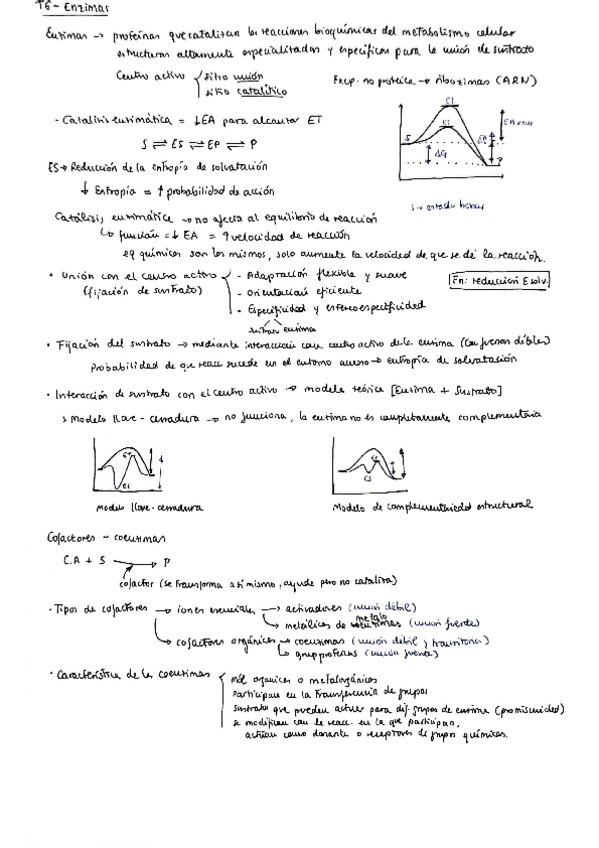 T6 - Enzimas
Enzimas → proteínas que catalizan las reacciones bioquímicas del metabolismo celular
estructuras altamente especializadas y específicas para la unión de sustrato
Centro activo
sitio unión
sitio catalítico
Excp. no proteica → ribozimas (ARN)
- Catálisis enzimática = ↓EA para alcanzar ET
S ⇌ ES ⇌ EP ⇌ P
ES → Reducción de la entropía de solvatación
↓ Entropía = ↑ probabilidad de acción
ET
ET
S
EA
ΔG
P
S → estado basal
Catálisis enzimática → no afecta al equilibrio de reacción
↳ función = ↓ EA = ↑ velocidad de reacción
eq químicos son los mismos, solo aumenta la velocidad de que se dé la reacción.
• Unión con el centro activo
(fijación de sustrato)
- Adaptación flexible y suave
- Orientación eficiente
- Especificidad y estereoespecificidad
sustrato enzima
Fn: reducción E solv.
• Fijación del sustrato → mediante interacción con centro activo de la enzima (con fuerzas débiles)
Probabilidad de que reacc suceda en el entorno acuoso → entropía de solvatación
• Interacción de sustrato con el centro activo → modelo teórico [Enzima + Sustrato]
Modelo llave - cerradura → no funciona, la enzima no es completamente complementaria
ET
ES
ET
ES
Modelo llave-cerradura
Modelo de complementariedad estructural
Cofactores - coenzimas
C.A + S → P
cofactor (se transforma a sí mismo, ayuda pero no cataliza)
• Tipos de cofactores → iones esenciales → activadores (unión débil)
metálicos de metaloenzimas (unión fuerte)
cofactores orgánicos → coenzimas (unión débil y transitoria)
grup proteicos (unión fuerte)
• Característica de las coenzimas
mol orgánicos o metalorgánicos
Participan en la transferencia de grupos
sustrato que pueden actuar para dif. grupos de enzima (promiscuidad)
se modifican con la reacc. en la que participan,
actúan como donante o receptores de grupos químicos.